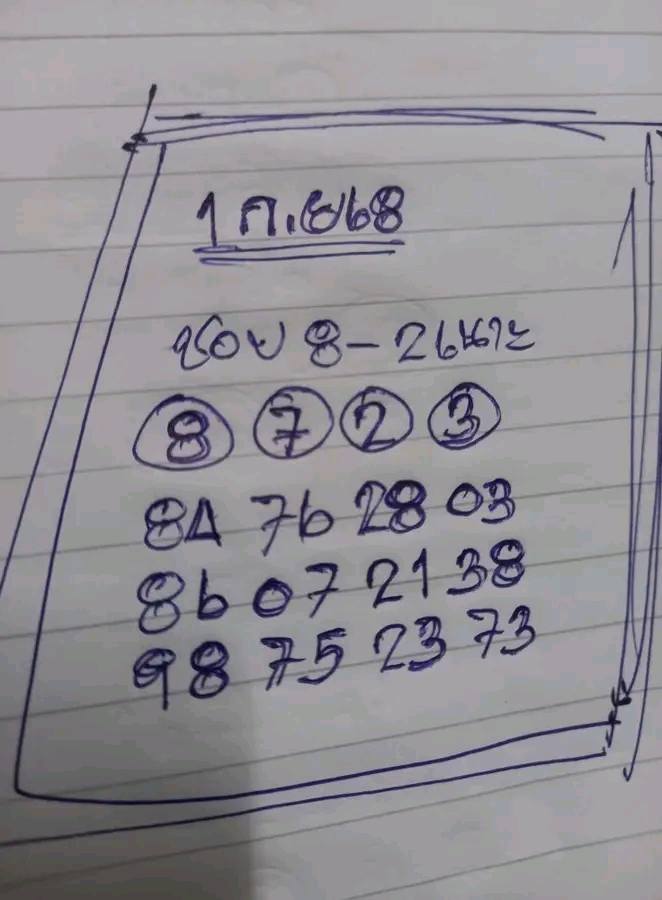 1 ก.ย68
ชอบ 8-2เน้าะ
8 7 2 3
84 76 28 03
86 07 21 38
98 75 23 73